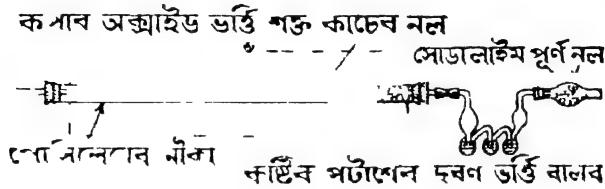 কপার অক্সাইড ভর্ত্তি শক্ত কাচের নল
সোডালাইম পূর্ণ নল
নৌকা
কষ্টিক পটাশের দ্রবণ ভর্ত্তি বালব